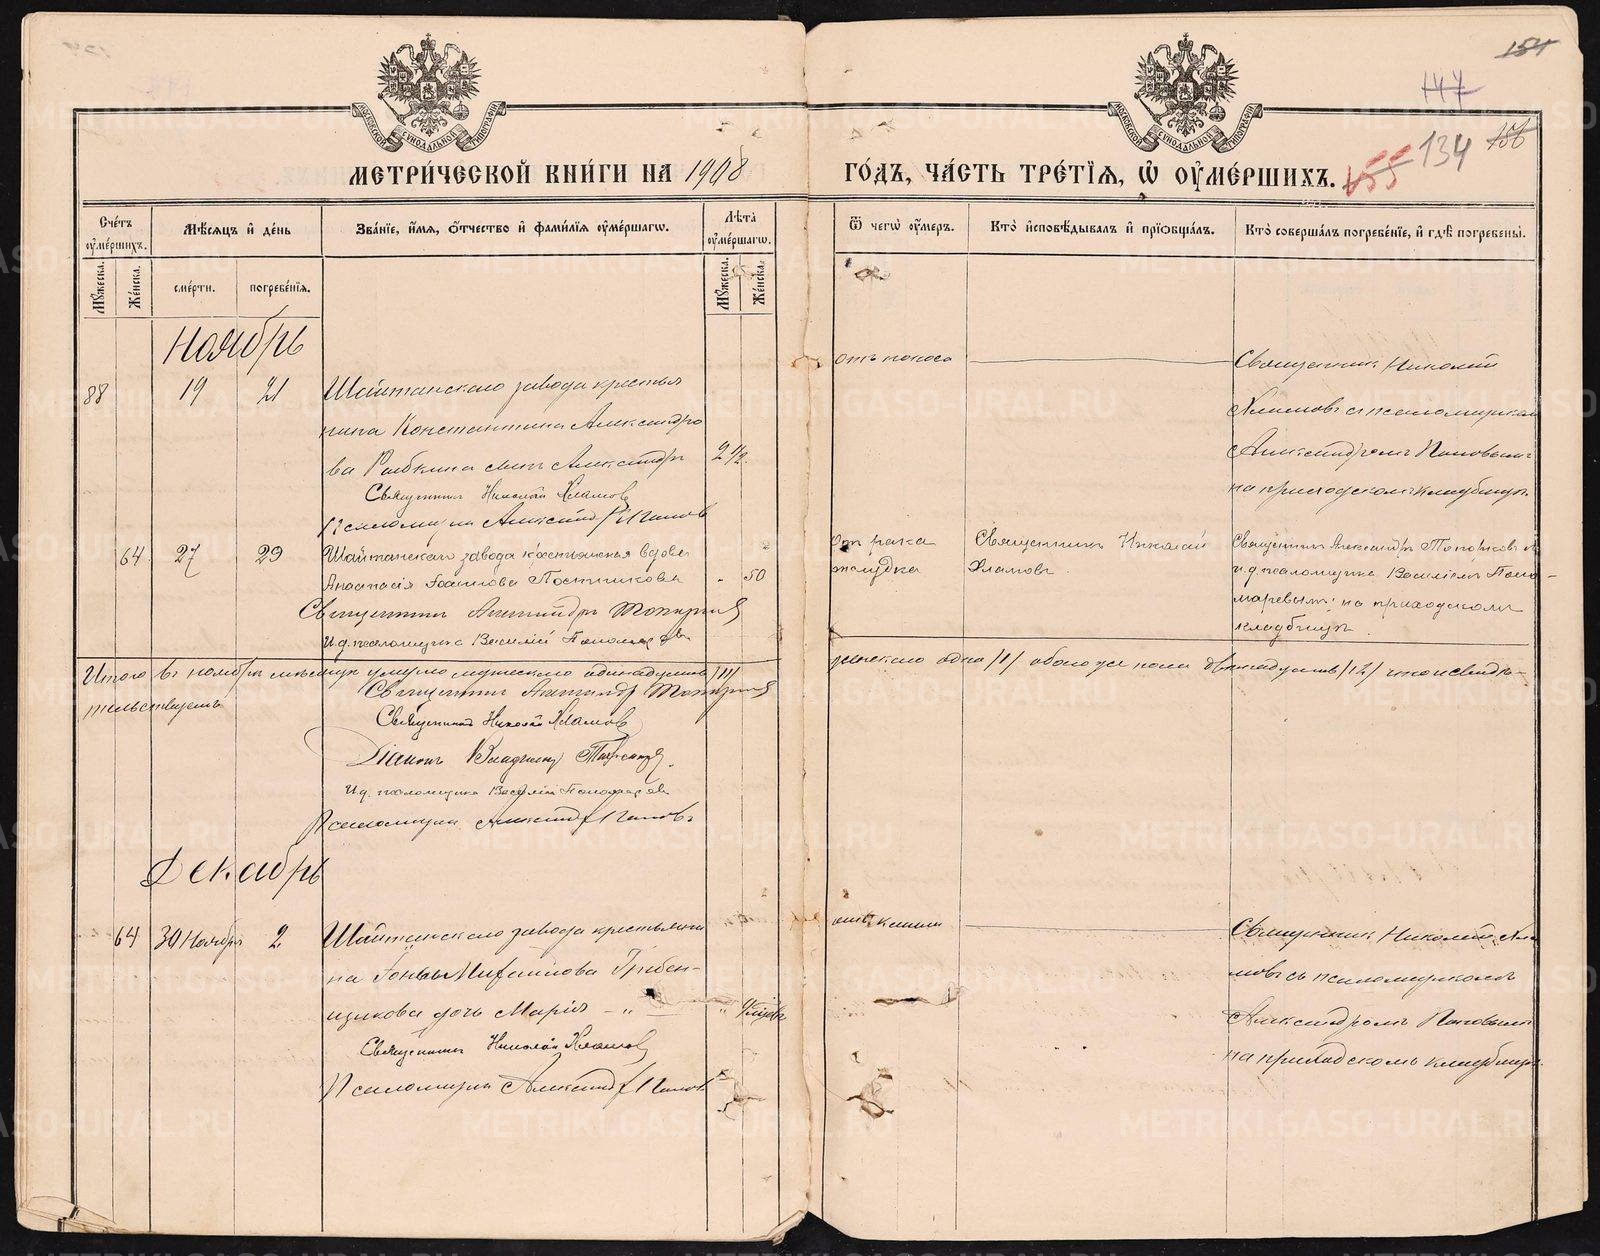 154
147
156
155
134
МОСКОВСКОЙ СУНОДАЛЬНОЙ ТИПОГРАФІИ
МОСКОВСКОЙ СУНОДАЛЬНОЙ ТИПОГРАФІИ
МЕТРИ́ЧЕСКОЙ КНИ́ГИ НА 1908 ГО́ДЪ, ЧА́СТЬ ТРЕ́ТІѦ, Ѡ҆ ОУ҆МЕ́РШИХЪ.
Сче́тъ оу҆ме́ршихъ.
Мѣ́сяцъ и҆ де́нь
Зва́ніе, и҆́мѧ, ѻ҆́тчество и҆ фами́лїѧ оу҆ме́ршагѡ.
Лѣ́та оу҆ме́ршагѡ.
Ѿ чегѡ̀ оу҆́меръ.
Кто̀ и҆сповѣ́дывалъ и҆ прїѡбща́лъ.
Кто̀ соверша́лъ погребе́нїе, и҆ гдѣ̀ погребены̀.
Мꙋ́жеска.
Же́нска.
сме́рти.
погребе́нїѧ.
Мꙋ́жеска.
Же́нска.
Ноябрь
88 19 21 Шайтанскаго завода крестья
нина Константина Александро
ва сынъ Александръ 2 1/2
Священникъ Николай Хламовъ
Псаломщикъ Александръ Поповъ
отъ поноса
Священникъ Николай
Хламовъ съ псаломщикомъ
Александромъ Поповымъ
на приходскомъ кладбищѣ
64 27 29 Шайтанскаго завода крестьянская вдова
Анастасія Іоаннова Постникова - 50
Священникъ Александръ Топорковъ
И.д. псаломщика Василій Пономаревъ
отъ рака
желудка
Священникъ Николай
Хламовъ.
Священникъ Александръ Топорковъ съ
и.д. псаломщика Василіемъ Поно-
маревымъ на приходскомъ
кладбищѣ.
Итого въ ноябрѣ мѣсяцѣ умерло мужескаго одинадцать /11/ женскаго одна /1/ обоего же пола двенадцать /12/ что и свидѣ-
тельствуемъ
Священникъ Александръ Топорковъ
Священникъ Николай Хламовъ
Діаконъ Владиміръ
И.д. псаломщика Василій Пономаревъ
Псаломщикъ Александръ Поповъ
Декабрь
64 30 Ноября 2 Шайтанскаго завода крестьяни
на Іоны Михаилова Гребен-
щикова дочь Марія - „ „
Священникъ Николай Хламовъ
Псаломщикъ Александръ Поповъ
отъ кашля
Священникъ Николай Хла
мовъ съ псаломщикомъ
Александромъ Поповымъ
на приходскомъ кладбищѣ.
METRIKI.GASO-URAL.RU